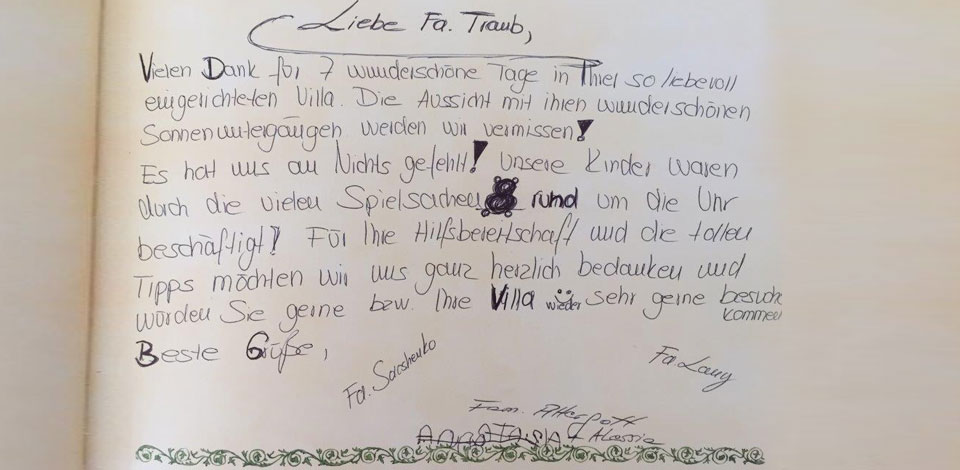 Liebe Fa. Traub,
Vielen Dank für 7 wunderschöne Tage in Ihrer so liebevoll
eingerichteten Villa. Die Aussicht mit ihren wunderschönen
Sonnenuntergängen werden wir vermissen!
Es hat uns an Nichts gefehlt! Unsere Kinder waren
durch die vielen Spielsachen rund um die Uhr
beschäftigt! Für Ihre Hilfsbereitschaft und die tollen
Tipps möchten wir uns ganz herzlich bedanken und
würden Sie gerne bzw. Ihre Villa wieder sehr gerne besuche
kommen
Beste Grüße,
Fa. Lang
Fa.
Fam.
Alessia